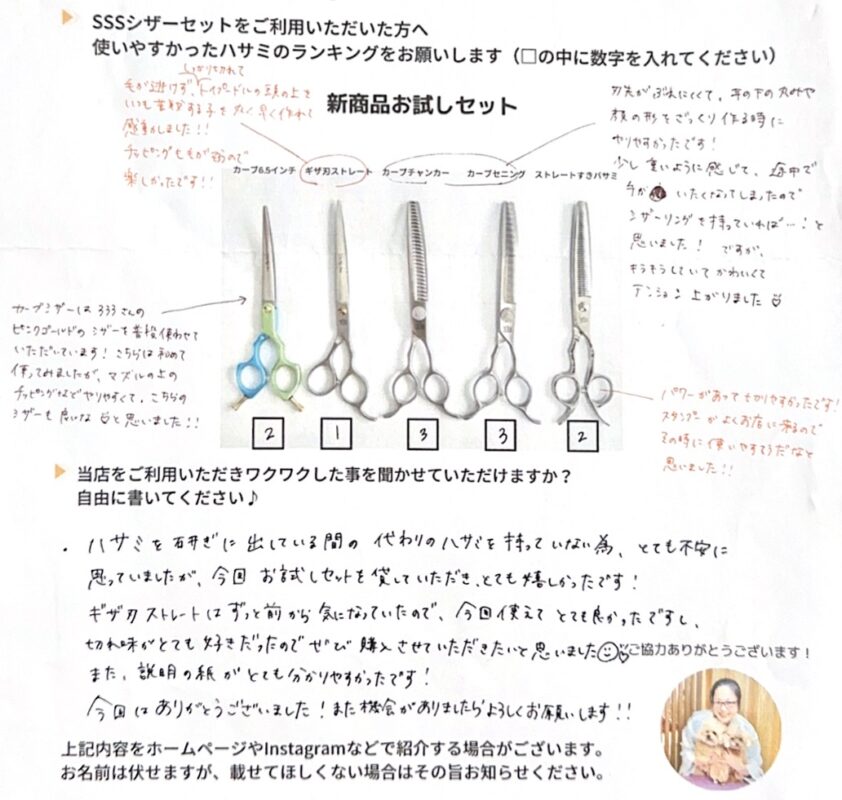 SSSシザーセットをご利用いただいた方へ
使いやすかったハサミのランキングをお願いします（□の中に数字を入れてください）
しっかり切れて
毛が逃げず、トイプードルの頭の上を
いつも苦戦する子も丸く早く作れて
感動しました！！
チッピングも毛が
楽しかったです！！
新商品お試しセット
刃先がぶれにくくて、耳の下の丸みや
板の形をざっくり作る時に
やりやすかったです！
少し重いように感じて、途中で
いたくなってしまったので
シザーリングを持っていれば…！と
思いました！ ですが、
キラキラしていてかわいくて
テンション上がりました
カーブ6.5インチ ギザ刃ストレート カーブチャンカー カーブセニング ストレートすきバサミ
カーブシザーは333さんの
ピンクゴールドのシザーを普段使わせて
いただいています！こちらは初めて
使ってみましたが、マズルの上の
チッピングなどやりやすくて、こちらの
シザーも良いな♡と思いました！！
パワーがあって分かりやすかったです！
スタンプーがよくお店に来るので
その時に使いやすそうだなと
思いました！！
2 1 3 3 2
当店をご利用いただきワクワクした事を聞かせていただけますか？
自由に書いてください♪
・ハサミを研ぎに出している間の代わりのハサミを持っていない為、とても不安に
思っていましたが、今回お試しセットを貸していただき、とても嬉しかったです！
ギザ刃ストレートはずっと前から気になっていたので、今回使えてとても良かったですし、
切れ味がとても好きだったのでぜひ購入させていただきたいと思いました
ご協力ありがとうございます！
また、説明の紙がとても分かりやすかったです！
今回はありがとうございました！また機会がありましたらよろしくお願いします！！
上記内容をホームページやInstagramなどで紹介する場合がございます。
お名前は伏せますが、載せてほしくない場合はその旨お知らせください。